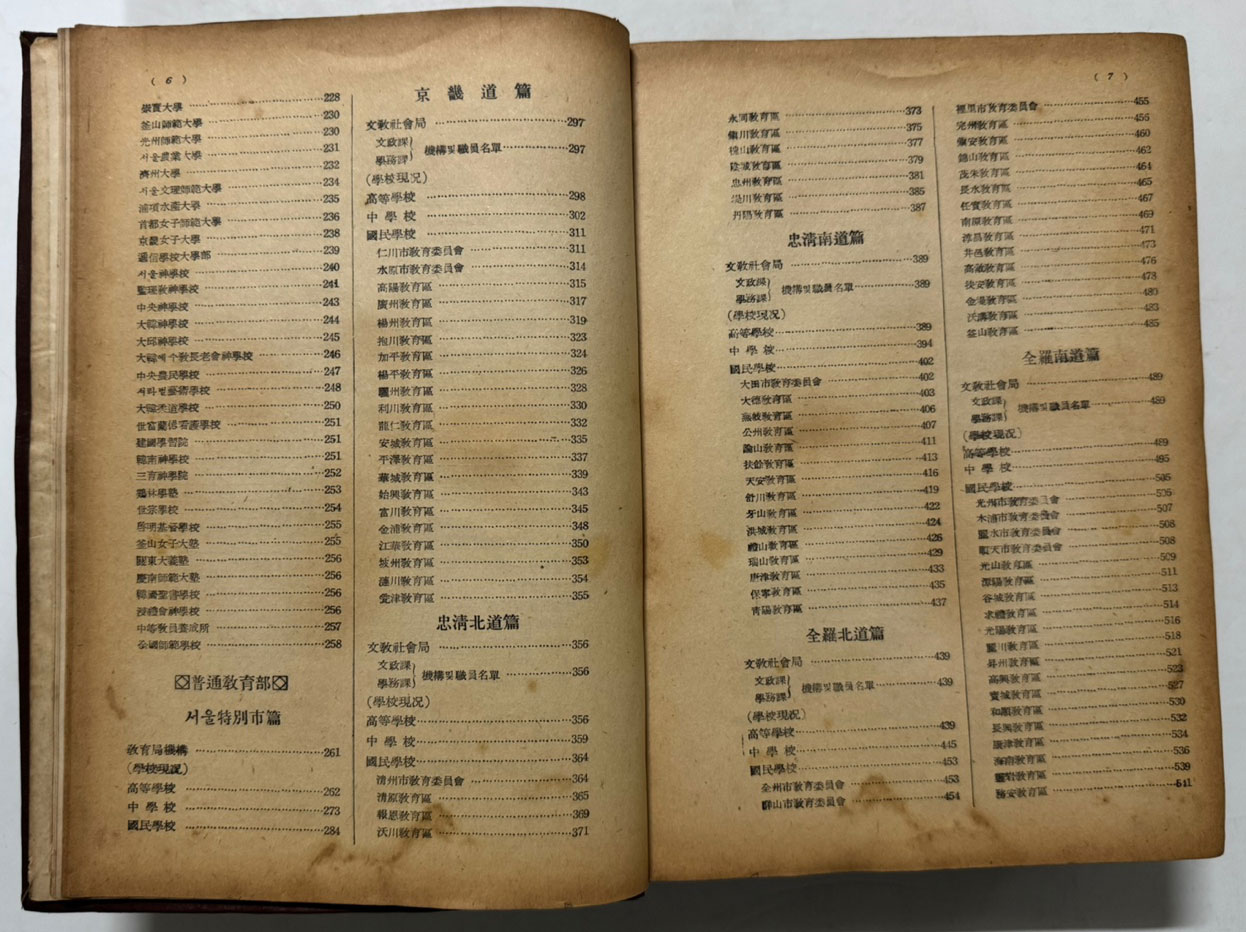 ( 6 )
崇實大學 228
釜山師範大學 230
光州師範大學 230
서울農業大學 231
濟州大學 232
서울文理師範大學 234
浦項水產大學 235
首都女子師範大學 236
京畿女子大學 238
通信學校大學部 239
서울神學校 240
監理敎神學校 241
中央神學校 243
大韓神學校 244
大邱神學校 245
大韓예수敎長老會神學校 246
中央農民學校 247
서라벌藝術學校 248
大韓柔道學校 250
世富蘭偲看護學校 251
建國學習院 251
韓南神學校 251
三育神學院 252
鷄林學塾 253
世宗學校 254
啓明基督學校 255
釜山女子大塾 255
關東大義塾 256
慶南師範大塾 256
韓國聖書學校 256
浸禮會神學校 256
中等敎員養成所 257
全國師範學校 258
普通敎育部
서울特別市篇
敎育局機構 261
(學校現況)
高等學校 262
中學校 273
國民學校 284
京畿道篇
文敎社會局 297
文政課
學務課 機構및職員名單 297
(學校現況)
高等學校 298
中學校 302
國民學校 311
仁川市敎育委員會 311
水原市敎育委員會 314
高陽敎育區 315
廣州敎育區 317
楊州敎育區 319
抱川敎育區 323
加平敎育區 324
楊平敎育區 326
驪州敎育區 328
利川敎育區 330
龍仁敎育區 332
安城敎育區 335
平澤敎育區 337
華城敎育區 339
始興敎育區 343
富川敎育區 345
金浦敎育區 348
江華敎育區 350
坡州敎育區 353
漣川敎育區 354
甕津敎育區 355
忠淸北道篇
文敎社會局 356
文政課
學務課 機構및職員名單 356
(學校現況)
高等學校 356
中學校 359
國民學校 364
淸州市敎育委員會 364
淸原敎育區 365
報恩敎育區 369
沃川敎育區 371
( 7 )
永同敎育區 373
鎭川敎育區 375
槐山敎育區 377
陰城敎育區 379
忠州敎育區 381
堤川敎育區 385
丹陽敎育區 387
忠淸南道篇
文敎社會局 389
文政課
學務課 機構및職員名單 389
(學校現況)
高等學校 389
中學校 394
國民學校 402
大田市敎育委員會 402
大德敎育區 403
燕岐敎育區 406
公州敎育區 407
論山敎育區 411
扶餘敎育區 413
天安敎育區 416
舒川敎育區 419
牙山敎育區 422
洪城敎育區 424
禮山敎育區 426
瑞山敎育區 429
唐津敎育區 433
保寧敎育區 435
靑陽敎育區 437
全羅北道篇
文敎社會局 439
文政課
學務課 機構및職員名單 439
(學校現況)
高等學校 439
中學校 445
國民學校 453
全州市敎育委員會 453
群山市敎育委員會 454
裡里市敎育委員會 455
完州敎育區 456
鎭安敎育區 460
錦山敎育區 462
茂朱敎育區 464
長水敎育區 465
任實敎育區 467
南原敎育區 469
淳昌敎育區 471
井邑敎育區 473
高敞敎育區 476
扶安敎育區 478
金堤敎育區 480
沃溝敎育區 483
益山敎育區 485
全羅南道篇
文敎社會局 489
文政課
學務課 機構및職員名單 489
(學校現況)
高等學校 489
中學校 495
國民學校 505
光州市敎育委員會 506
木浦市敎育委員會 507
麗水市敎育委員會 508
順天市敎育委員會 508
光山敎育區 509
潭陽敎育區 511
谷城敎育區 513
求禮敎育區 514
光陽敎育區 516
麗川敎育區 518
昇州敎育區 521
高興敎育區 523
寶城敎育區 527
和順敎育區 530
長興敎育區 532
康津敎育區 534
海南敎育區 536
靈岩敎育區 539
務安敎育區 541